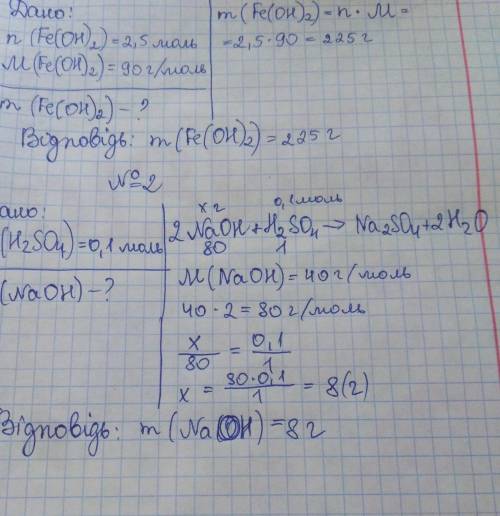 Дано:
n (Fe(OH)₂) = 2,5 моль
M (Fe(OH)₂) = 90 г/моль
m (Fe(OH)₂) - ?
m (Fe(OH)₂) = n · M =
= 2,5 · 90 = 225 г
Відповідь: m (Fe(OH)₂) = 225 г
№2
ано:
(H₂SO₄) = 0,1 моль
(NaOH) - ?
x г 0,1 моль
2NaOH + H₂SO₄ → Na₂SO₄ + 2H₂O
80 1
M (NaOH) = 40 г/моль
40 · 2 = 80 г/моль
x/80 = 0,1/1
x = 80·0,1/1 = 8 (г)
Відповідь: m (NaOH) = 8 г